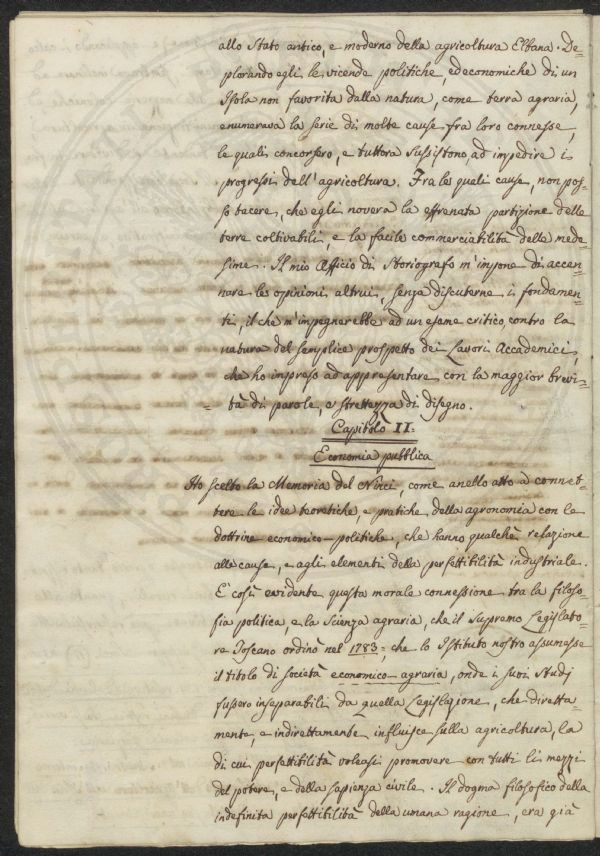 allo Stato antico, e moderno della agricoltura Elbana. De=
plorando egli le vicende politiche, ed economiche di un
Isola non favorita dalla natura, come terra agraria,
enumerava la serie di molte cause fra loro connesse,
le quali concorsero, e tuttora sussistono, ad impedire i
progressi dell'agricoltura. Fra le quali cause, non pos=
so tacere, che egli novera la effrenata partizione delle
terre coltivabili, e la facile commerciabilità delle mede=
sime. Il mio Officio di Storiografo m'impone di accen=
nare le opinioni altrui, senza discuterne i fondamen=
ti, il che m'impegnerebbe ad un esame critico, contro la
natura del semplice prospetto dei Lavori Accademici,
che ho impreso ad appresentare, con la maggior brevi=
=tà di parole, e strettezza di disegno.
Capitolo II.
Economia pubblica
Ho scelto la Memoria del Ninci, come anello atto a connet=
tere le idee teoretiche, e pratiche della agronomia con le
dottrine economico-politiche, che hanno qualche relazione
alle cause, e agli elementi della perfettibilità industriale.
E' così evidente questa morale connessione tra la filoso=
fia politica, e la Scienza agraria, che il Supremo Legislato=
re Toscano ordinò nel 1783=, che lo Istituto nostro assumesse
il titolo di società economico-agraria, onde i suoi Studj
fussero inseparabili da quella Legislazione, che diretta=
mente, e indirettamente influisce sulla agricoltura, la
di cui perfettibilità voleasi promovere con tutti li mezzi
del potere, e della sapienza civile. Il dogma filosofico della
indefinita perfettibilità della umana ragione, era già